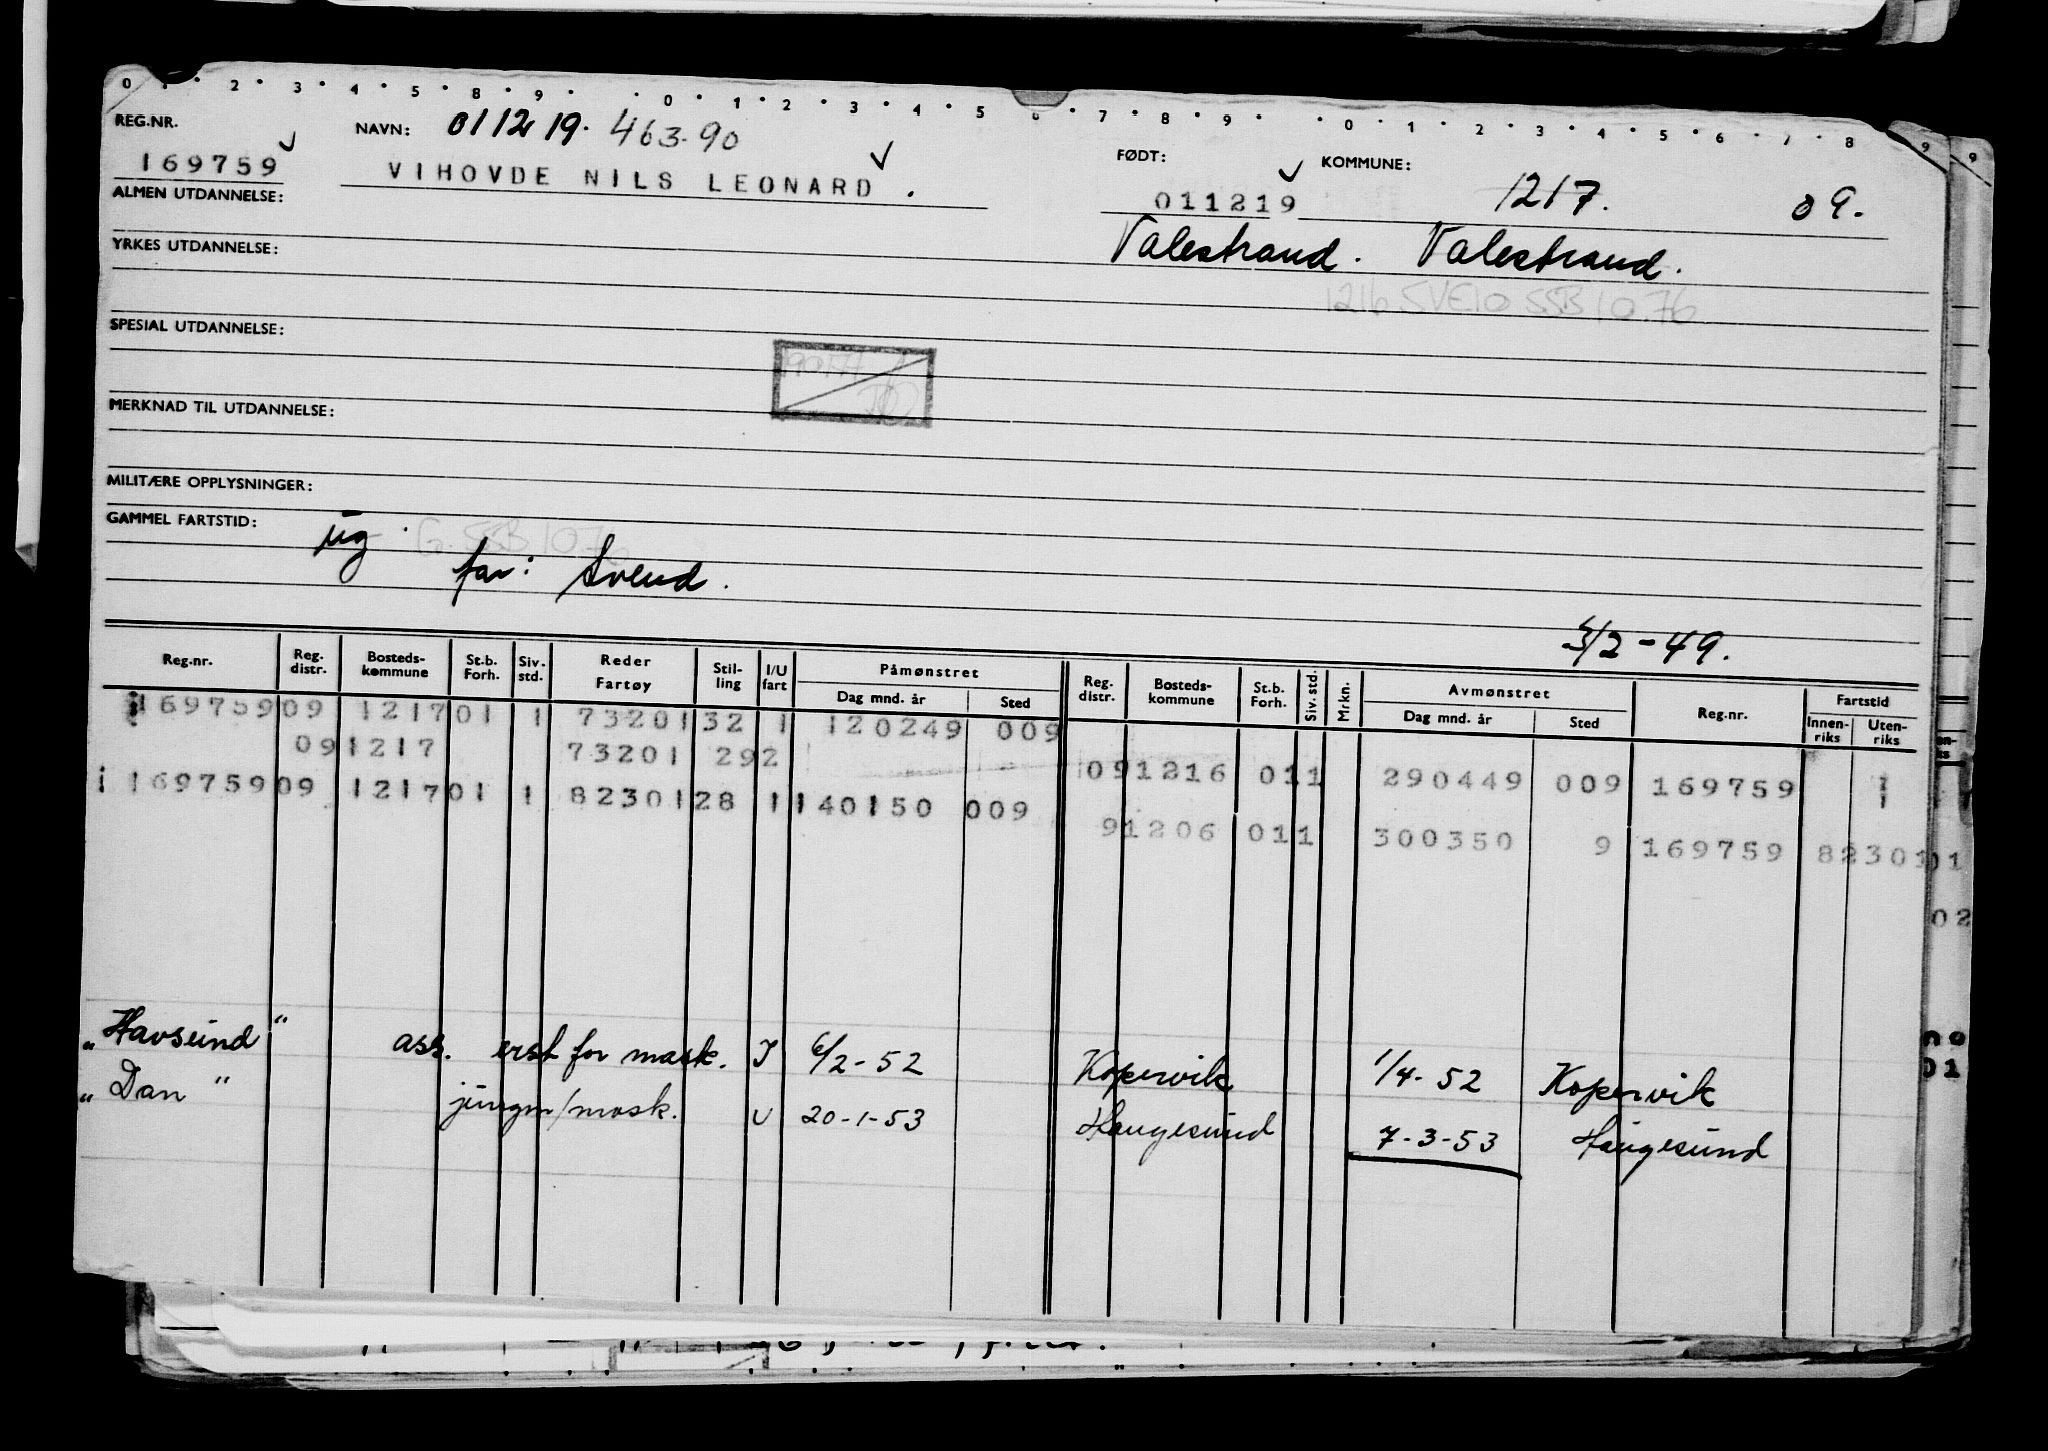 0 . 2 . 3 . 4 . 5 . 8 . 9 . . 0 . 1 . 2 . 3 . 4 . 5 6 . 7 . 8 . 9 . . 0 . 1 . 2 . 3 . 4 . 5 . 6 . 7 . 8 9 9
REG.NR. NAVN: 011219. 463.90 FØDT: KOMMUNE:
169759 VIHOVDE NILS LEONARD . 011219 1217. 09.
ALMEN UTDANNELSE:
Valestrand. Valestrand.
YRKES UTDANNELSE:
1216 SVEIO SSB 10.76
SPESIAL UTDANNELSE:
MERKNAD TIL UTDANNELSE:
MILITÆRE OPPLYSNINGER:
GAMMEL FARTSTID: jug. G. SSB 10.76
far: Svend.
5/2-49.
Reg.nr. Reg. distr. Bosteds-kommune St.b. Forh. Siv. std. Reder Fartøy Stil-ling I/U fart Påmønstret Dag mnd. år Sted Reg. distr. Bosteds-kommune St.b. Forh. Siv. std. Mrkn. Avmønstret Dag mnd. år Sted Reg.nr. Fartstid Innen-riks Uten-riks
169759 09 1217 01 1 73201 32 1 120249 009
09 1217 73201 292
09 1216 01 1 290449 009 169759 1
169759 09 1217 01 1 82301 28 1 140150 009
9 1206 01 1 300350 9 169759 82301 01
02
"Havsund" ass. erst for mask. I 6/2-52 Kopervik 1/4-52 Kopervik
"Dan" jungm/mask. U 20-1-53 Haugesund 7-3-53 Haugesund
no
01